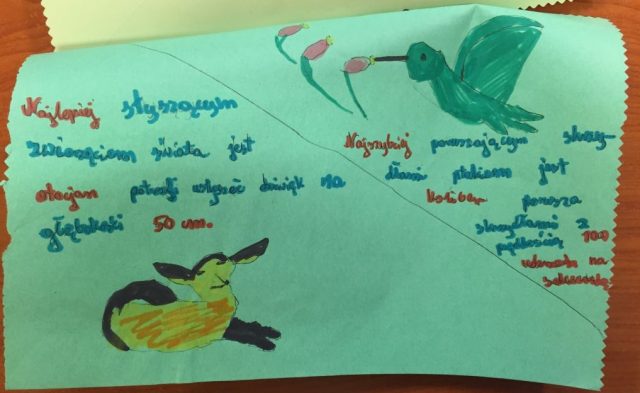 Najlepiej słyszącym
zwierzęciem świata jest
otocjon potrafi usłyszeć dźwięk na
głębokości 50 cm.
Najszybciej poruszającym skrzy-
dłami ptakiem jest
koliber porusza
skrzydłami z
prędkością 100
uderzeń na
sekundę.